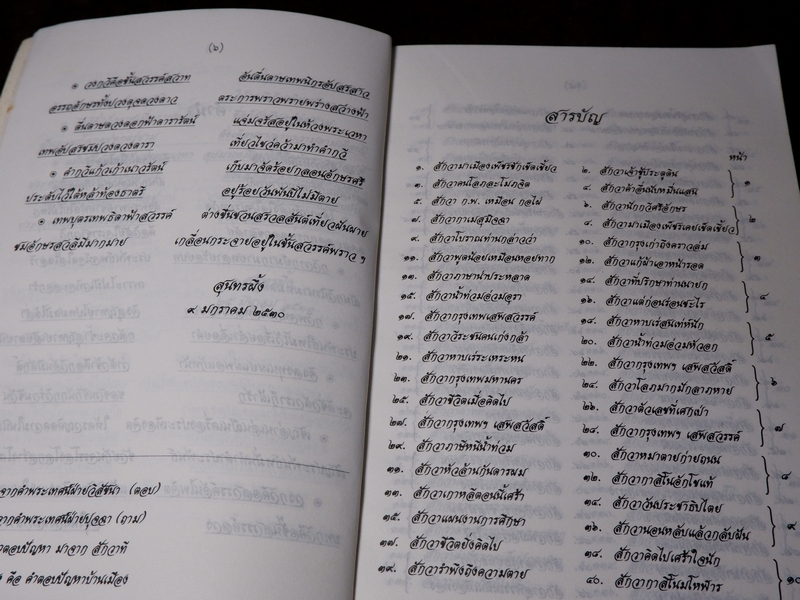 (๖)
๏ วงกวีคือชั้นสวรรค์สวาท อันดื่นดาษเทพนิกรอัปสรสาว
อรรถอักษรทั้งปวงดุจดวงดาว ตระการพราวพรายพร่างสว่างฟ้า
๏ ดื่นดาษดวงดอกฟ้าดารารัตน์ แจ่มจรัสอยู่ในห้วงพระเวหา
เทพอัปสรชมปวงดวงดารา เที่ยวไขว่คว้ามาทำคำกวี
๏ คำกวีแก้วเก้าเนาวรัตน์ เก็บมาจัดร้อยกลอนอักษรศรี
ประดับไว้ใต้หล้าท้องธาตรี อยู่ร้อยวันพันปีไม่มีตาย
๏ เทพบุตรเทพธิดาฟ้าสวรรค์ ต่างชื่นชวนสรวลสันต์เที่ยวผันผาย
ชมอักษรสวลีมีมากมาย เกลื่อนกระจายอยู่ในชั้นสวรรค์พราว ฯ
สุนทรผึ้ง
๙ มกราคม ๒๕๓๐
จากคำพระเทศน์ฝ่ายวิสัชนา (ตอบ)
จากคำพระเทศน์ฝ่ายปุจฉา (ถาม)
คำตอบปัญหา มาจาก สักวาที
คือ คำตอบปัญหาบ้านเมือง
สารบัญ
หน้า
๑. สักวามาเมืองเพ็ชรชักเข็ดเขี้ยว ๒. สักวาเจ้าชู้ประตูดิน ๑
๓. สักวาคนโลภละโมภจิต ๔. สักวาค่ำตื่นนับหมื่นแสน
๕. สักวา ก.พ. เหมือน กอไผ่ ๖. สักวานักกวีศรีอักษร ๒
๗. สักวากาเมสุมิจฉา ๘. สักวามาเมืองเพ็ชรเคยเข็ดเขี้ยว
๙. สักวาโบราณท่านกล่าวว่า ๑๐. สักวากรุงเก่าถึงคราวล่ม ๓
๑๑. สักวาพูดน้อยเหมือนหอยทาก ๑๒. สักวาแก้ผ้าเอาหน้ารอด
๑๓. สักวาภาษาน่าประหลาด ๑๔. สักวาที่ปรึกษาท่านนายก ๔
๑๕. สักวาน้ำท่วมอ่วมอุรา ๑๖. สักวาแต่ก่อนร่อนชะไร
๑๗. สักวากรุงเทพเสพสวรรค์ ๑๘. สักวาหาบเร่สนเท่ห์นัก ๕
๑๙. สักวาวีระชนคนเก่งกล้า ๒๐. สักวาน้ำท่วมอ่วมหัวอก
๒๑. สักวาหาบเร่ระเหระหน ๒๒. สักวากรุงเทพฯ เสพสวัสดิ์ ๖
๒๓. สักวากรุงเทพมหานคร ๒๔. สักวาโลภมากมักลาภหาย
๒๕. สักวาชีวิตเมื่อคิดไป ๒๖. สักวาตัวเลขที่เศกเป่า ๗
๒๗. สักวากรุงเทพฯ เสพสวัสดิ์ ๒๘. สักวากรุงเทพฯ เสพสวรรค์
๒๙. สักวาภาษีหนีน้ำท่วม ๓๐. สักวาหมาตายก่ายถนน ๘
๓๑. สักวาหัวล้านกันดารผม ๓๒. สักวากาสิโนอักโขแท้
๓๓. สักวาเกาหลีตอนนี้เศร้า ๓๔. สักวาวันประชาธิปไตย ๙
๓๕. สักวาแผนงานการศึกษา ๓๖. สักวานอนหลับแล้วกลับฝัน
๓๗. สักวาชีวิตยิ่งคิดไป ๓๘. สักวาคิดไปเศร้าใจนัก ๑๐
๓๙. สักวารำพึงถึงความตาย ๔๐. สักวากาสิโนมโหฬาร